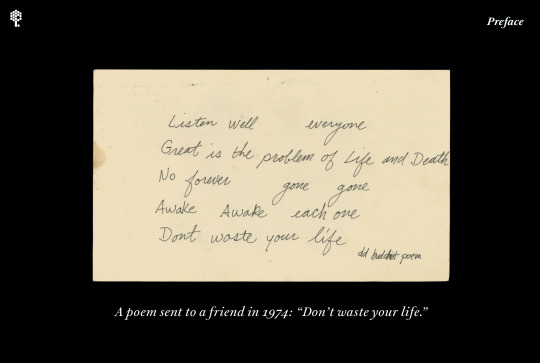 Preface
Listen well everyone
Great is the problem of Life and Death
No forever gone gone
Awake Awake each one
Dont waste your life
old budhist poem
A poem sent to a friend in 1974: “Don’t waste your life.”